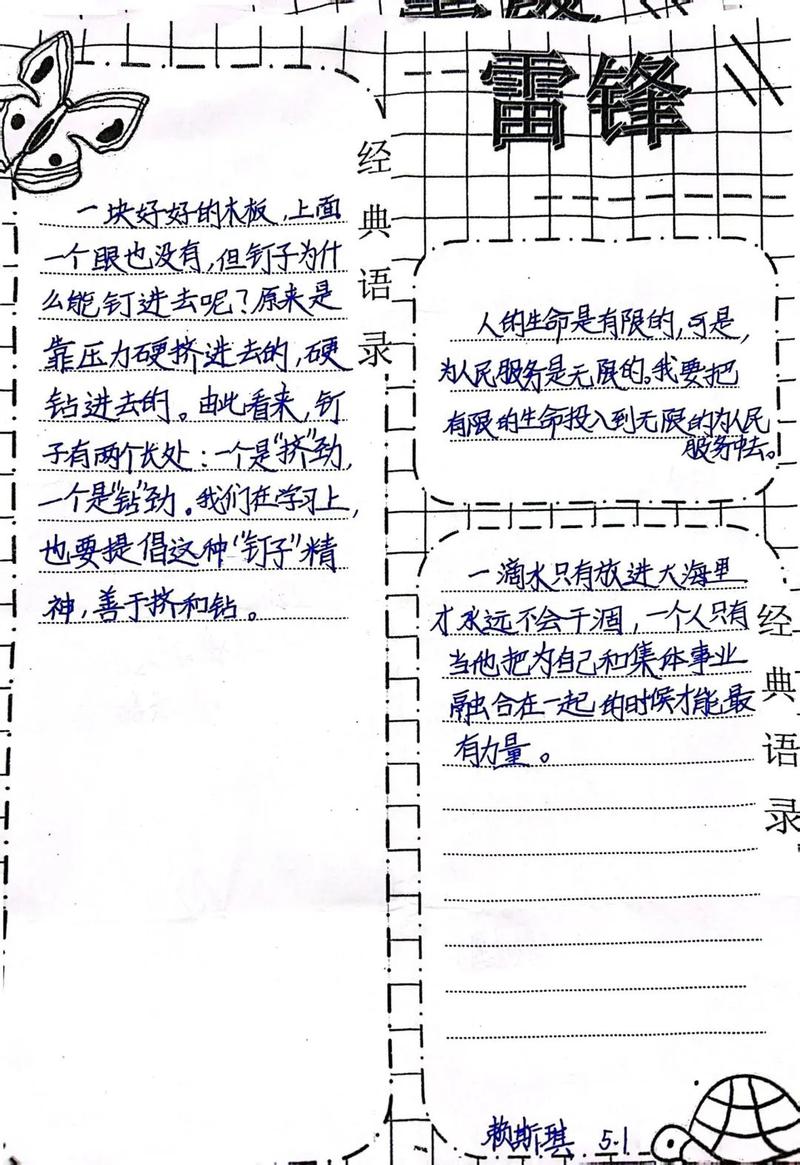 雷锋
经典语录
一块好好的木板,上面
一个眼也没有,但钉子为什
么能钉进去呢?原来是
靠压力硬挤进去的,硬
钻进去的。由此看来,钉
子有两个长处:一个是"挤"劲,
一个是"钻"劲。我们在学习上,
也要提倡这种"钉子"精
神,善于挤和钻。
人的生命是有限的,可是,
为人民服务是无限的。我要把
有限的生命投入到无限的为人民
服务中去。
经典语录
一滴水只有放进大海里
才永远不会干涸,一个人只有
当他把为自己和集体事业
融合在一起的时候才能最
有力量。
赖斯琪 5.1